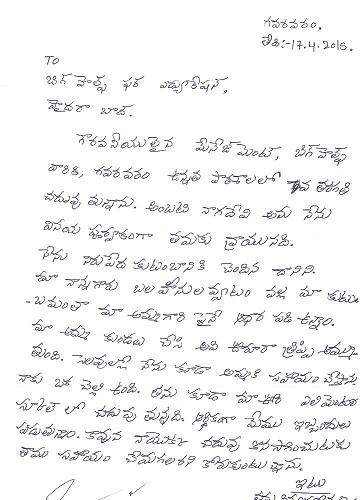 గవరవరం.
తేది:-17.4.2015.
TO
బిగ్ హెల్ప్ ఫర్ ఎడ్యుకేషన్,
హైదరా బాద్.
గౌరవనీయులైన మేనేజ్ మెంట్, బిగ్ హెల్ప్
వారికి, గవరవరం ఉన్నత పాఠశాలలో వ తరగతి
చదువు తున్నాను. అంబటి నాగదేవి అను నేను
వినయ పూర్వకంగా తమకు వ్రాయునది.
నేను నిరుపేద కుటుంబానికి చెందిన దానిని.
మా నాన్నగారు బలహీనులవ్వటం వల్ల మా కుటుం
-బమంతా మా అమ్మగారి పైనే ఆధార పడి ఉన్నాం.
మా అమ్మ కుండలు చేసి అవి ఊరూరా త్రిప్పి అమ్ము
తుంది. సెలవుల్లో నేను కూడా అమ్మకి సహాయం చేస్తాను
నాకు ఒక చెల్లి ఉంది. తను కూడా మా ఊరి ఎలిమెంటరి
స్కూల్ లో చదువు తున్నది. ఆర్థికంగా మేము ఇబ్బందులు
పడుతున్నాం. కావున నాయొక్క చదువు కొనసాగించుటకు
తాము సహాయం చేయగలరని కోరుకుంటున్నాను.
ఇట్లు